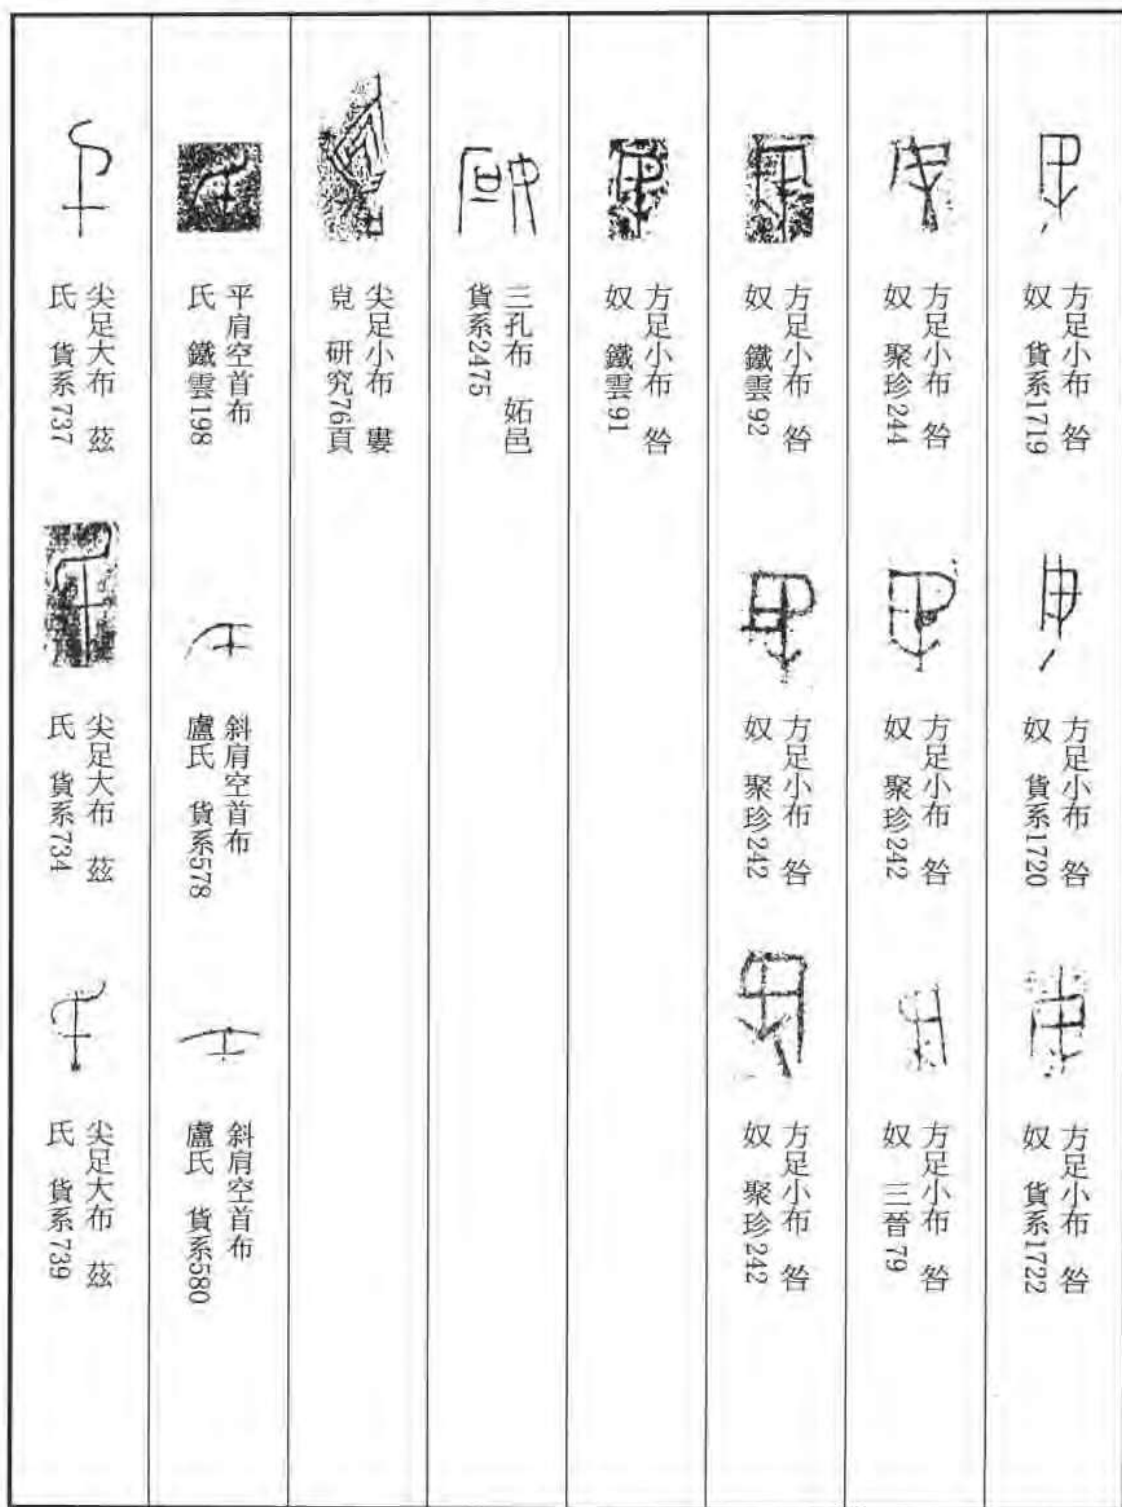 方足小布　咎
奴　貨系1719
方足小布　咎
奴　貨系1720
方足小布　咎
奴　貨系1722
方足小布　咎
奴　聚珍244
方足小布　咎
奴　聚珍242
方足小布　咎
奴　三晉79
方足小布　咎
奴　鐵雲92
方足小布　咎
奴　聚珍242
方足小布　咎
奴　聚珍242
方足小布　咎
奴　鐵雲91
三孔布　妬邑
貨系2475
尖足小布　婁
皃　研究76頁
平肩空首布
氏　鐵雲198
斜肩空首布
盧氏　貨系578
斜肩空首布
盧氏　貨系580
尖足大布　茲
氏　貨系737
尖足大布　茲
氏　貨系734
尖足大布　茲
氏　貨系739